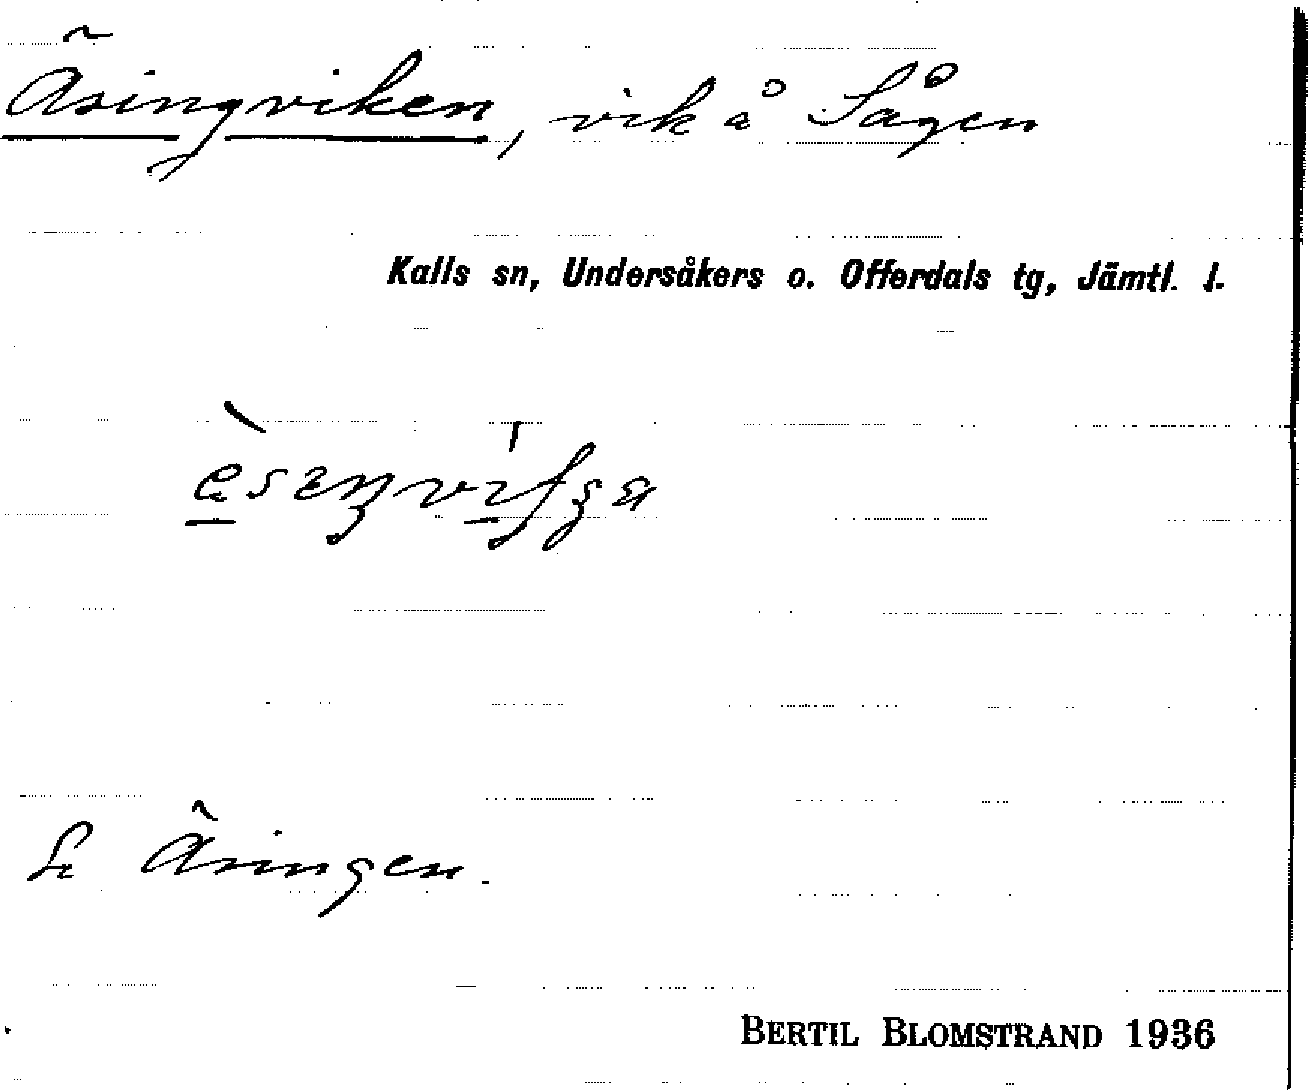 Äsingviken, vik å Sågen
Kalls sn, Undersåkers o. Offerdals tg, Jämtl. l.
Se Äsingen.
BERTIL BLOMSTRAND 1936